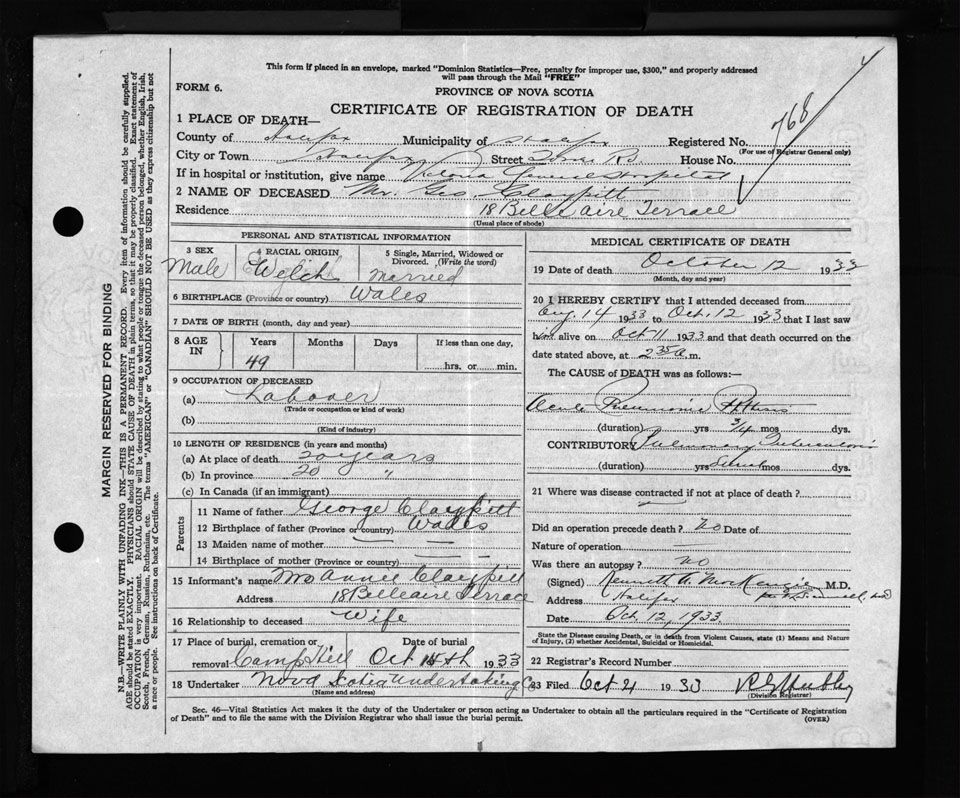 This form if placed in an envelope, marked "Dominion Statistics—Free, penalty for improper use, $300," and properly addressed
will pass through the Mail "FREE"
FORM 6.
PROVINCE OF NOVA SCOTIA
CERTIFICATE OF REGISTRATION OF DEATH
768
1 PLACE OF DEATH—
County of Halifax Municipality of Halifax Registered No.
(For use of Registrar General only)
City or Town Halifax Street House No.
If in hospital or institution, give name Victoria General Hospital
2 NAME OF DECEASED Mr. Geo. Claypitt
Residence 18 Belle Aire Terrace
(Usual place of abode)
PERSONAL AND STATISTICAL INFORMATION
3 SEX Male
4 RACIAL ORIGIN Welch
5 Single, Married, Widowed or Divorced. (Write the word) Married
6 BIRTHPLACE (Province or country) Wales
7 DATE OF BIRTH (month, day and year)
8 AGE IN Years Months Days If less than one day,
49 hrs. or min.
9 OCCUPATION OF DECEASED
(a) Labourer
(Trade or occupation or kind of work)
(b)
(Kind of industry)
10 LENGTH OF RESIDENCE (in years and months)
(a) At place of death 20 years
(b) In province 20 "
(c) In Canada (if an immigrant)
Parents
11 Name of father George Claypitt
12 Birthplace of father (Province or country) Wales
13 Maiden name of mother — — —
14 Birthplace of mother (Province or country) — —
15 Informant's name Mrs Annie Claypitt
Address 18 Belleaire Terrace
16 Relationship to deceased Wife
17 Place of burial, cremation or removal Camp Hill Date of burial Oct 15th 1933
18 Undertaker Nova Scotia Undertaking Co
(Name and address)
MEDICAL CERTIFICATE OF DEATH
19 Date of death October 12 1933
(Month, day and year)
20 I HEREBY CERTIFY that I attended deceased from
Aug 14 1933 to Oct. 12 1933 that I last saw
him alive on Oct 11 1933 and that death occurred on
date stated above, at 2 35 a.m.
The CAUSE of DEATH was as follows:—
Acute Pneumonic Phthisis
(duration) yrs 3/4 mos dys.
CONTRIBUTORY Pulmonary Tuberculosis
(duration) yrs mos dys.
21 Where was disease contracted if not at place of death?
Did an operation precede death? No Date of
Nature of operation
Was there an autopsy? no
(Signed) Kenneth A. MacKenzie M.D.
Address Halifax
Date Oct 12, 1933
State the Disease causing Death, or in death from Violent Causes, state (1) Means and Nature
of Injury, (2) whether Accidental, Suicidal or Homicidal.
22 Registrar's Record Number
23 Filed Oct 21 1933
(Division Registrar)
Sec. 46—Vital Statistics Act makes it the duty of the Undertaker or person acting as Undertaker to obtain all the particulars required in the "Certificate of Registration
of Death" and to file the same with the Division Registrar who shall issue the burial permit.
(OVER)
MARGIN RESERVED FOR BINDING
N.B.—WRITE PLAINLY WITH UNFADING INK—THIS IS A PERMANENT RECORD. Every item of information should be carefully supplied.
AGE should be stated EXACTLY. PHYSICIANS should STATE CAUSE OF DEATH in plain terms, so that it may be properly classified. Exact statement of
OCCUPATION is very important. RACIAL ORIGIN will be described by stating to what people or tongue the deceased person belonged, whether English, Irish,
Scotch, French, German, Russian, Ruthenian, etc. The terms "AMERICAN" or "CANADIAN" SHOULD NOT BE USED as they express citizenship but not
a race or people. See instructions on back of Certificate.